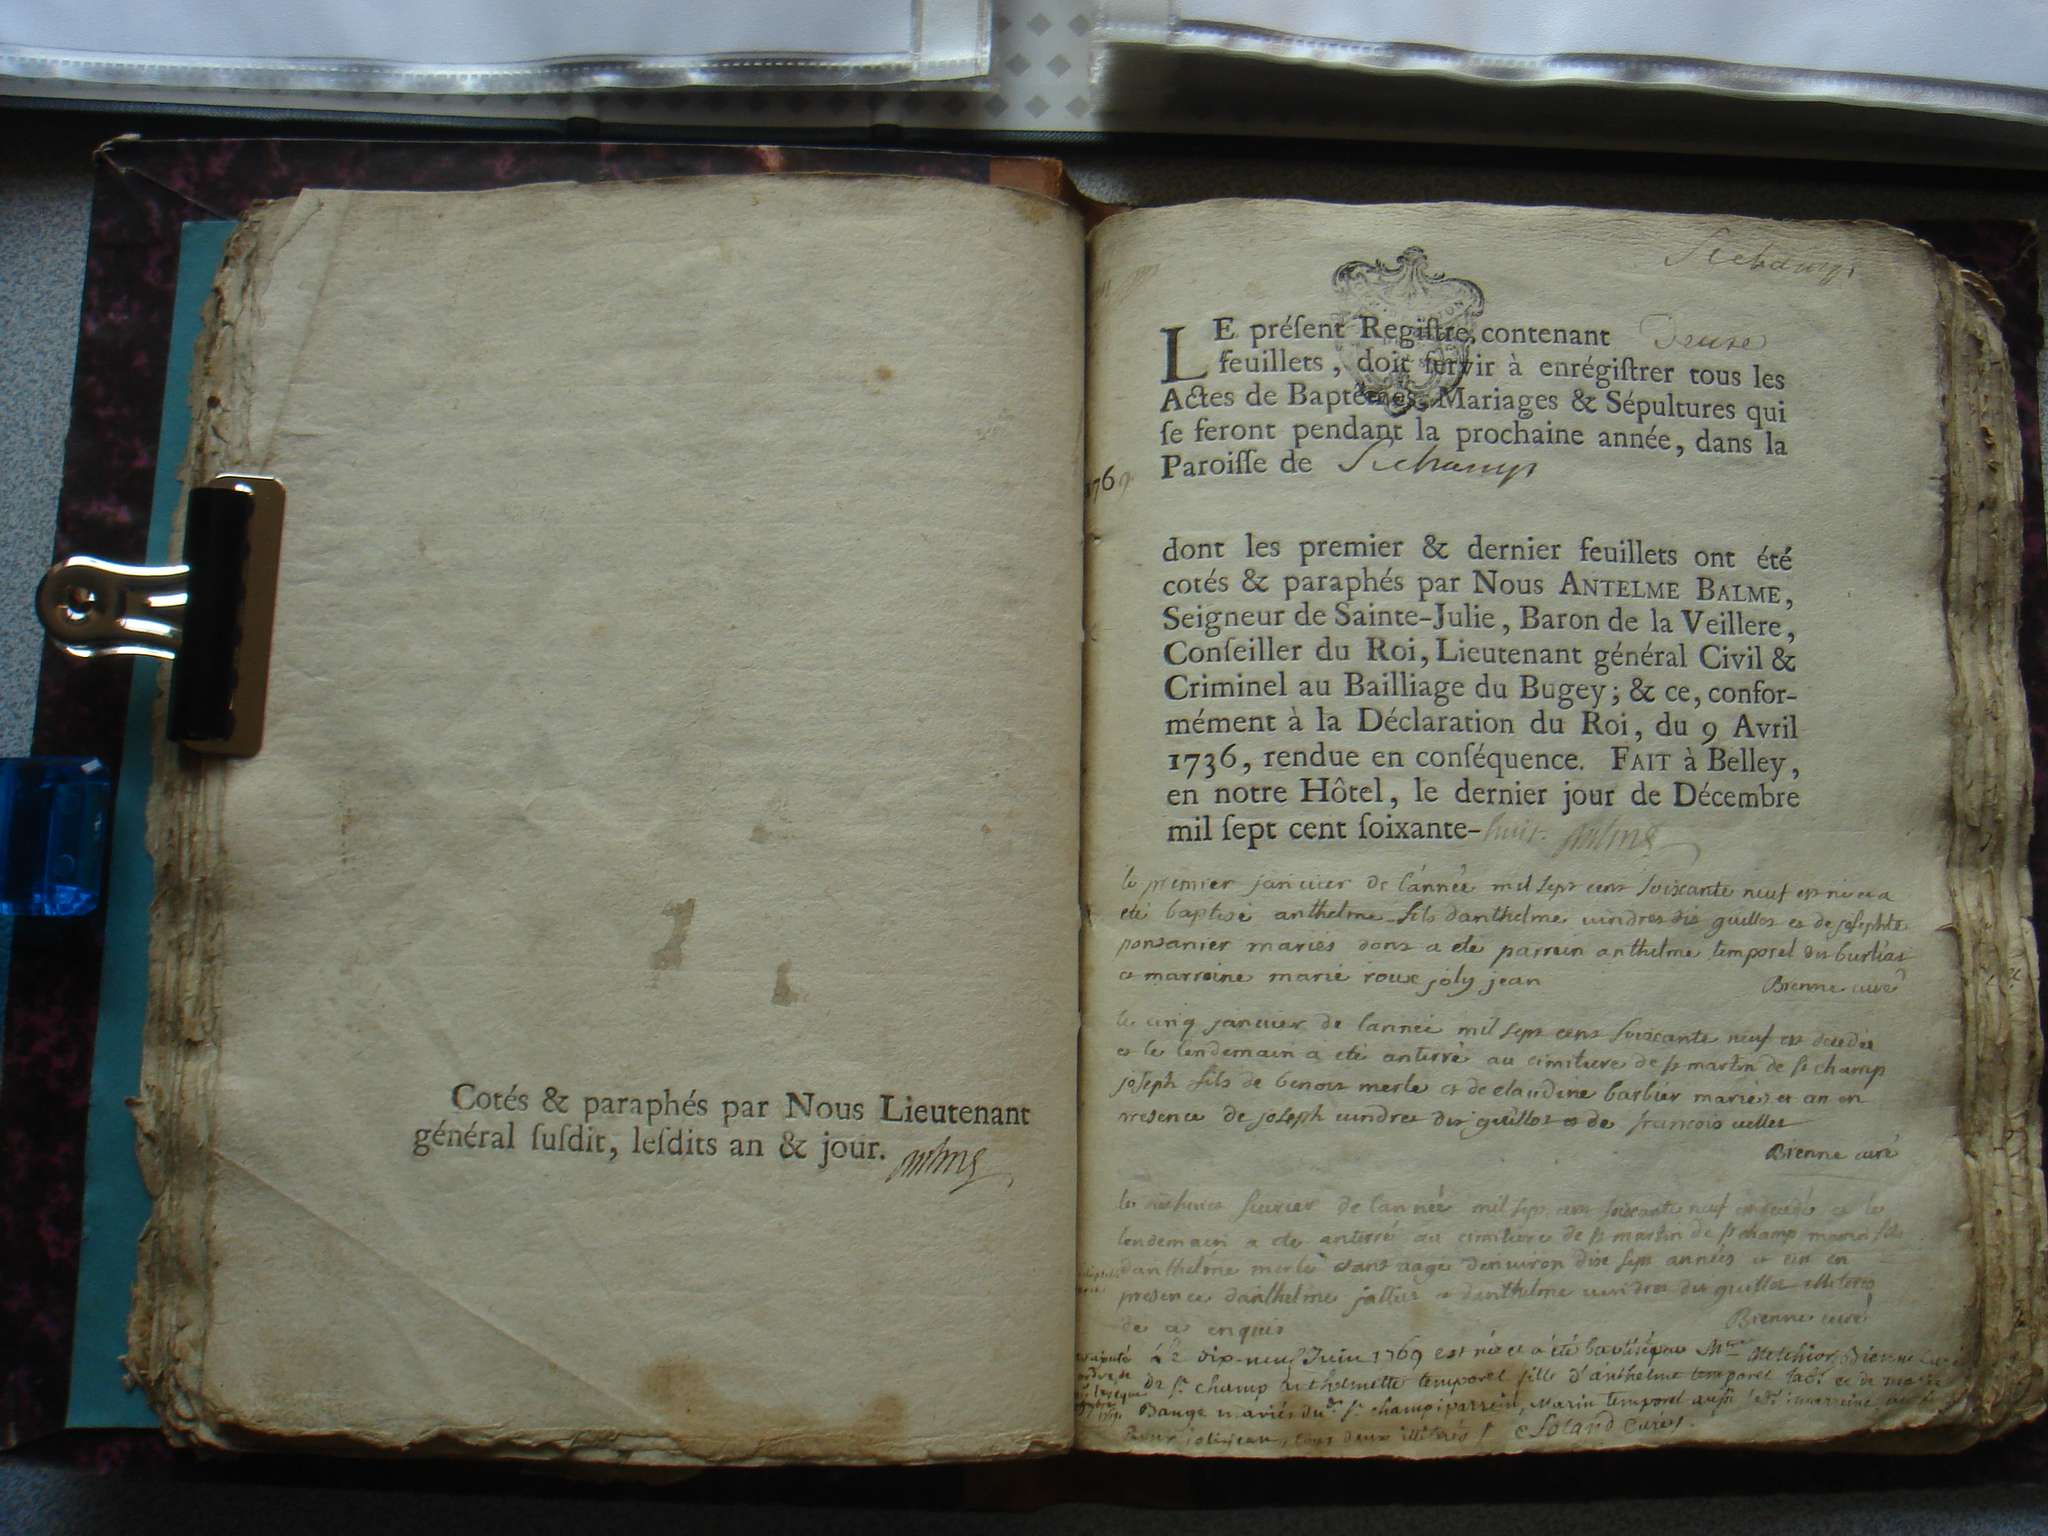 Cotés & paraphés par Nous Lieutenant
général ſuſdit, leſdits an & jour.
St champ
LE préſent Regiſtre, contenant
feuillets, doit ſervir à enrégiſtrer tous les
Actes de Baptêmes, Mariages & Sépultures qui
ſe feront pendant la prochaine année, dans la
Paroiſſe de St champ
1769
dont les premier & dernier feuillets ont été
cotés & paraphés par Nous ANTELME BALME,
Seigneur de Sainte-Julie, Baron de la Veillere,
Conſeiller du Roi, Lieutenant général Civil &
Criminel au Bailliage du Bugey; & ce, confor-
mément à la Déclaration du Roi, du 9 Avril
1736, rendue en conſéquence. FAIT à Belley,
en notre Hôtel, le dernier jour de Décembre
mil ſept cent ſoixante-huit.
le premier janvier de l'année mil sept cent soixante neuf est né et a
été baptisé anthelme fils danthelme vindret dit guillot et de josephte
ponsanier mariés dont a été parrein anthelme temporel dit burliat
et marreine marie roux joly jean
Bienne curé
le cinq janvier de lannée mil sept cent soixante neuf est decedé
et le lendemain a été anterré au cimitiere de st martin de st champ
joseph fils de benoit merle et de claudine barbier mariés et an en
presence de joseph vindret dit guillot et de francois
Bienne curé
le fevrier de lannée mil sept cent soixante neuf est decedé et le
lendemain a été anterré au cimitiere de st martin de st champ fils
danthelme merle etant aagé denviron dix sept années et en
presence danthelme et danthelme vindret dit guillot illiteres
de ce enquis
Bienne curé
Le dix-neuf Juin 1769 est née et a été baptisée par Mre Melchior Bienne
de St champ anthelmette temporel fille d'anthelme temporel et de
Bauge mariés du St champ; parrein, Marin temporel aussi marreine
Roux joli-jean, tous deux illiterés Curé